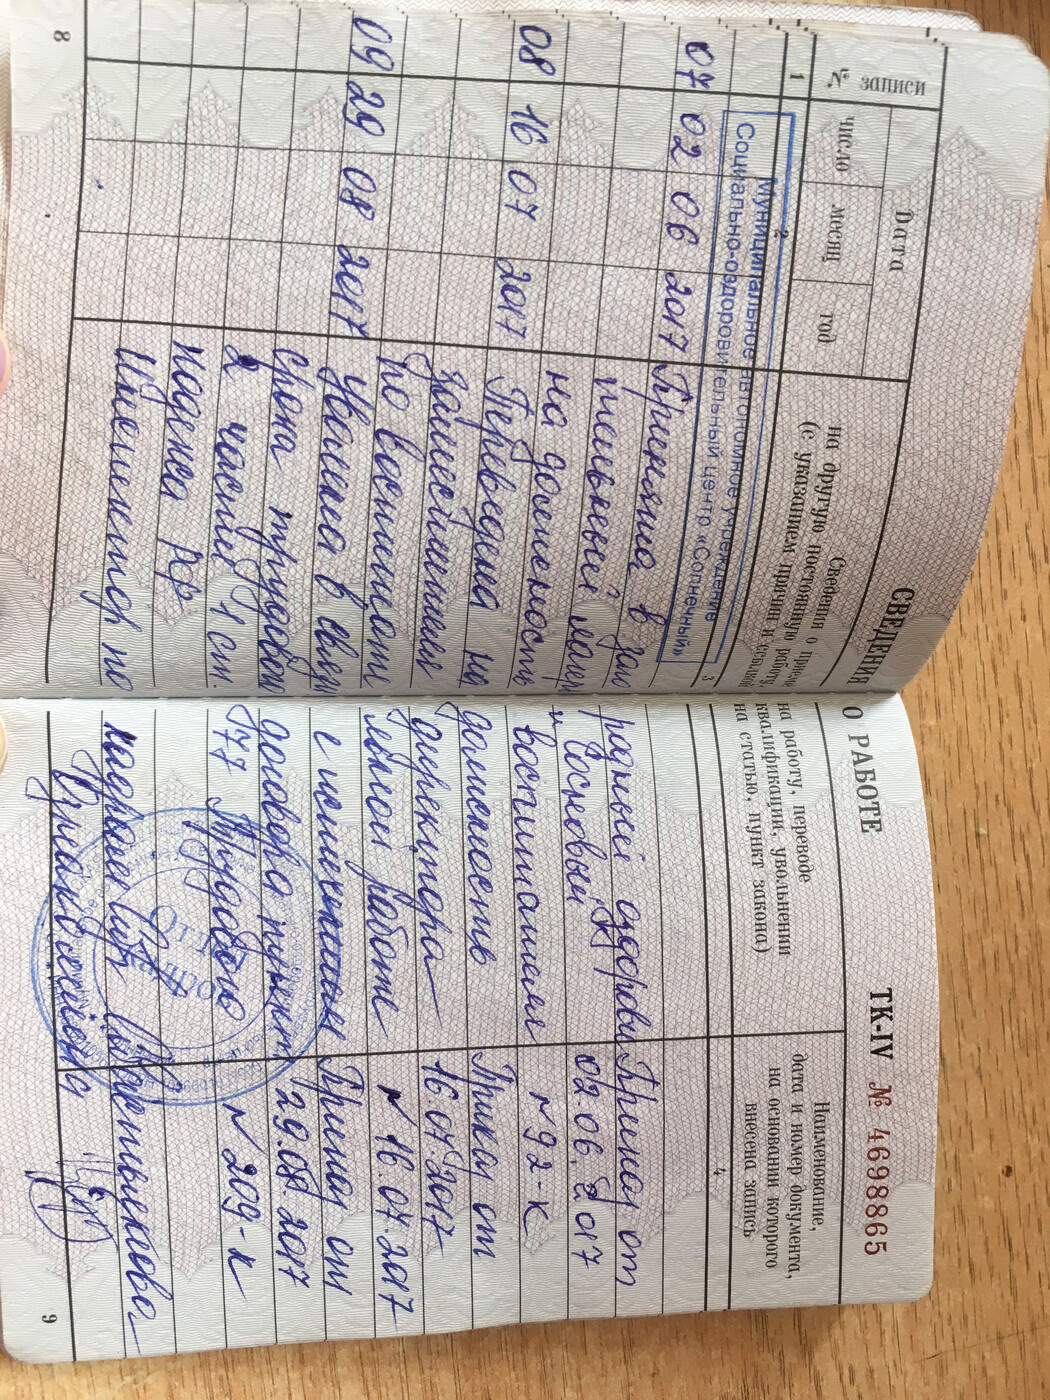 СВЕДЕНИЯ О РАБОТЕ
ТК-IV № 4698865
№ записи
Дата
число
месяц
год
Сведения о приеме на работу, переводе
на другую постоянную работу, квалификации, увольнении
(с указанием причин и ссылкой на статью, пункт закона)
Наименование,
дата и номер документа,
на основании которого
внесена запись
1
2
3
4
Муниципальное автономное учреждение
Социально-оздоровительный центр «Солнечный»
07 02 06 2017 Принята в заго
родный оздорови
Приказ от
тельный лагерь
02.06.2017
на должность
воспитателя
№92-к
08 16 07 2017 Переведена на
должность
Приказ от
заместителя
директора
16.07.2017
по воспитат
ельной работе
№ 16.07.2017
09 29 08 2017 Уволена в связи
с истечением
Приказ от
срока трудового
договора пункт
29.08.2017
2 части 1 ст.
77 Трудового
№ 209-к
кодекса РФ
Инспектор по
кадрам
8
9